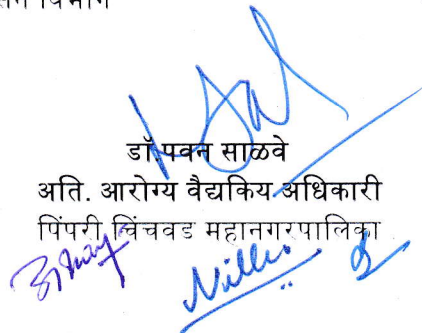 विभाग
डॉ.पवन साळवे
अति. आरोग्य वैद्यकिय अधिकारी
पिंपरी चिंचवड महानगरपालिका